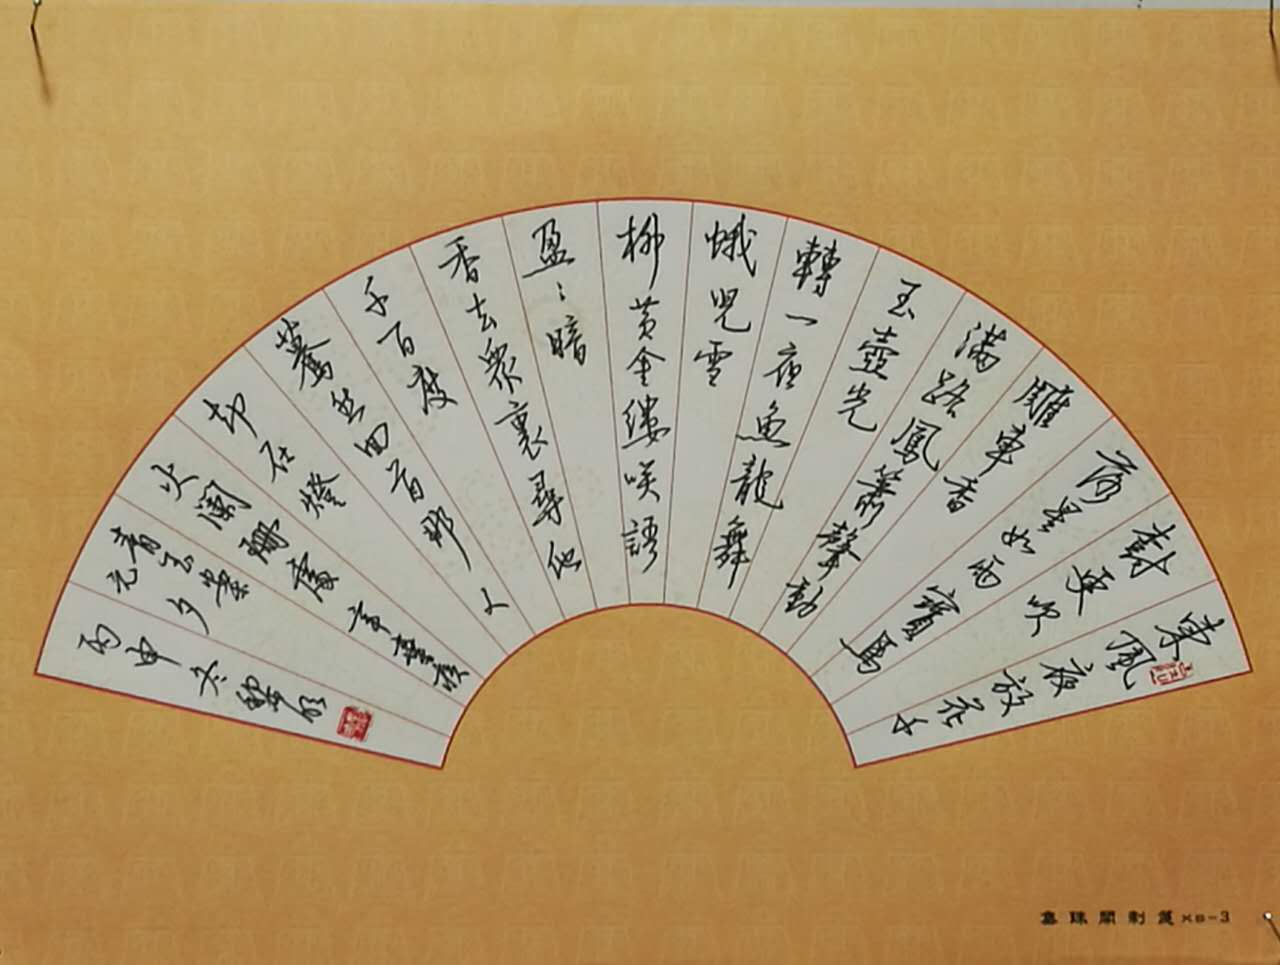 東風夜放花千
樹更吹
落星如雨寶馬
雕車香
滿路鳳簫聲動
玉壺光
轉一夜魚龍舞
蛾兒雪
柳黃金縷笑語
盈〻暗
香去衆裏尋他
千百度
驀然回首那人
却在燈
火闌珊處 辛棄疾
青玉案
元夕
丙申冬
XS-3